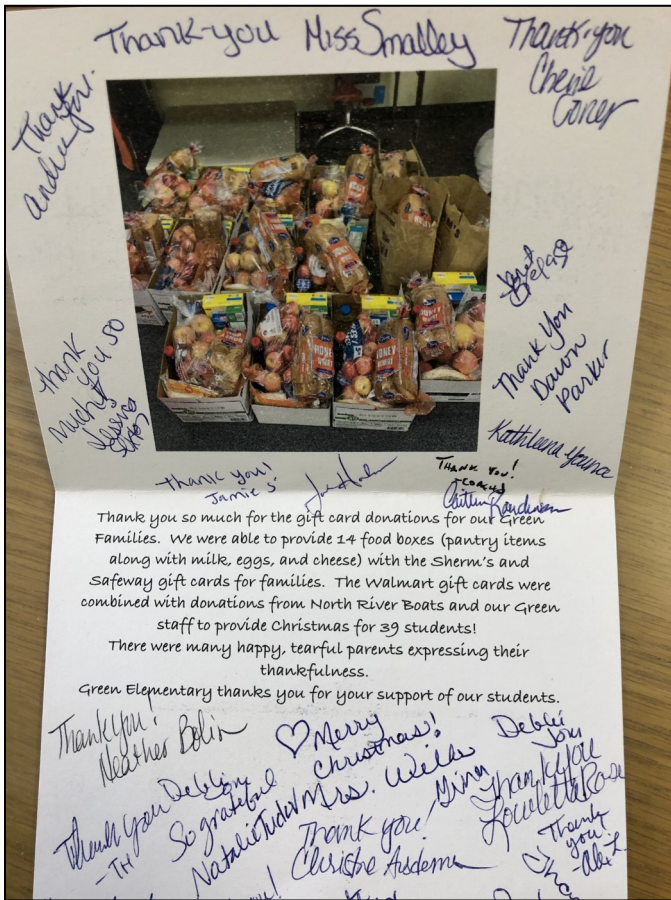 Thank-you Miss Smalley
Thank-you
Cherie
Thank
you.
Thank
you so
much
Janet
Thank you
Dawn
Parker
Kathleena Young
Thank you!
Jamie S.
THANK YOU!
Caitlin
HONEY
WHEAT
HONEY
WHEAT
Thank you so much for the gift card donations for our Green
Families. We were able to provide 14 food boxes (pantry items
along with milk, eggs, and cheese) with the Sherm's and
Safeway gift cards for families. The Walmart gift cards were
combined with donations from North River Boats and our Green
staff to provide Christmas for 39 students!
There were many happy, tearful parents expressing their
thankfulness.
Green Elementary thanks you for your support of our students.
Thank you!
Heather Bolin
Merry
Christmas!
Mrs. Wills
Debbi
Thank you
-TH
Debbie
So grateful
Natalie Tudor
Gina
Thank you
Louetta Rose
Thank you!
Christine
Thank
you!
-Alex L.